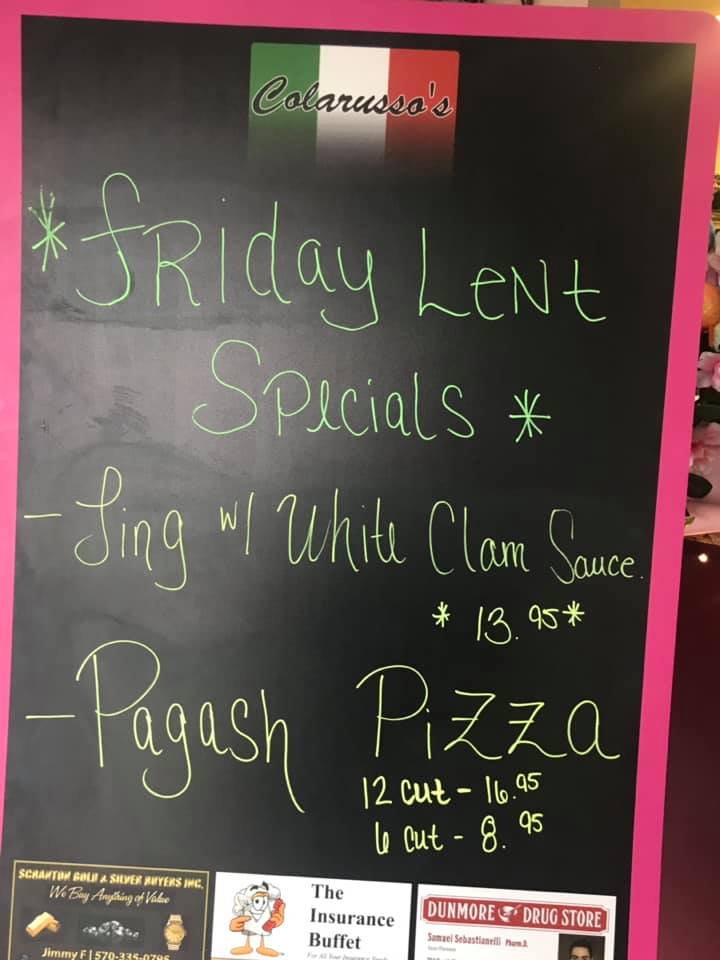 Colarusso's
*fRiday LeNt
Specials *
- Ling w/ White Clam Sauce.
* 13.95*
- Pagash Pizza
12 cut - 16.95
6 cut - 8.95
SCRANTON GOLD & SILVER BUYERS INC.
We Buy Anything of Value
Jimmy F | 570-335-0795
The
Insurance
Buffet
DUNMORE DRUG STORE
Samaei Sebastianelli Pharm.D.